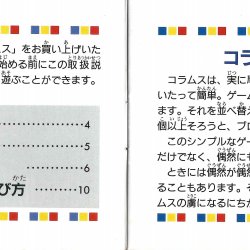 ス」をお買い上げいた
始める前にこの取扱説
遊ぶことができます。
4
5
6
び方 10
コラ
コラムスは、実に
いたって簡単。ゲーム
ます。それを並べ替
個以上そろうと、ブロ
このシンプルなゲー
だけでなく、偶然にも
ときには偶然が偶然
ることもあります。そ
ムスの虜になるにちか